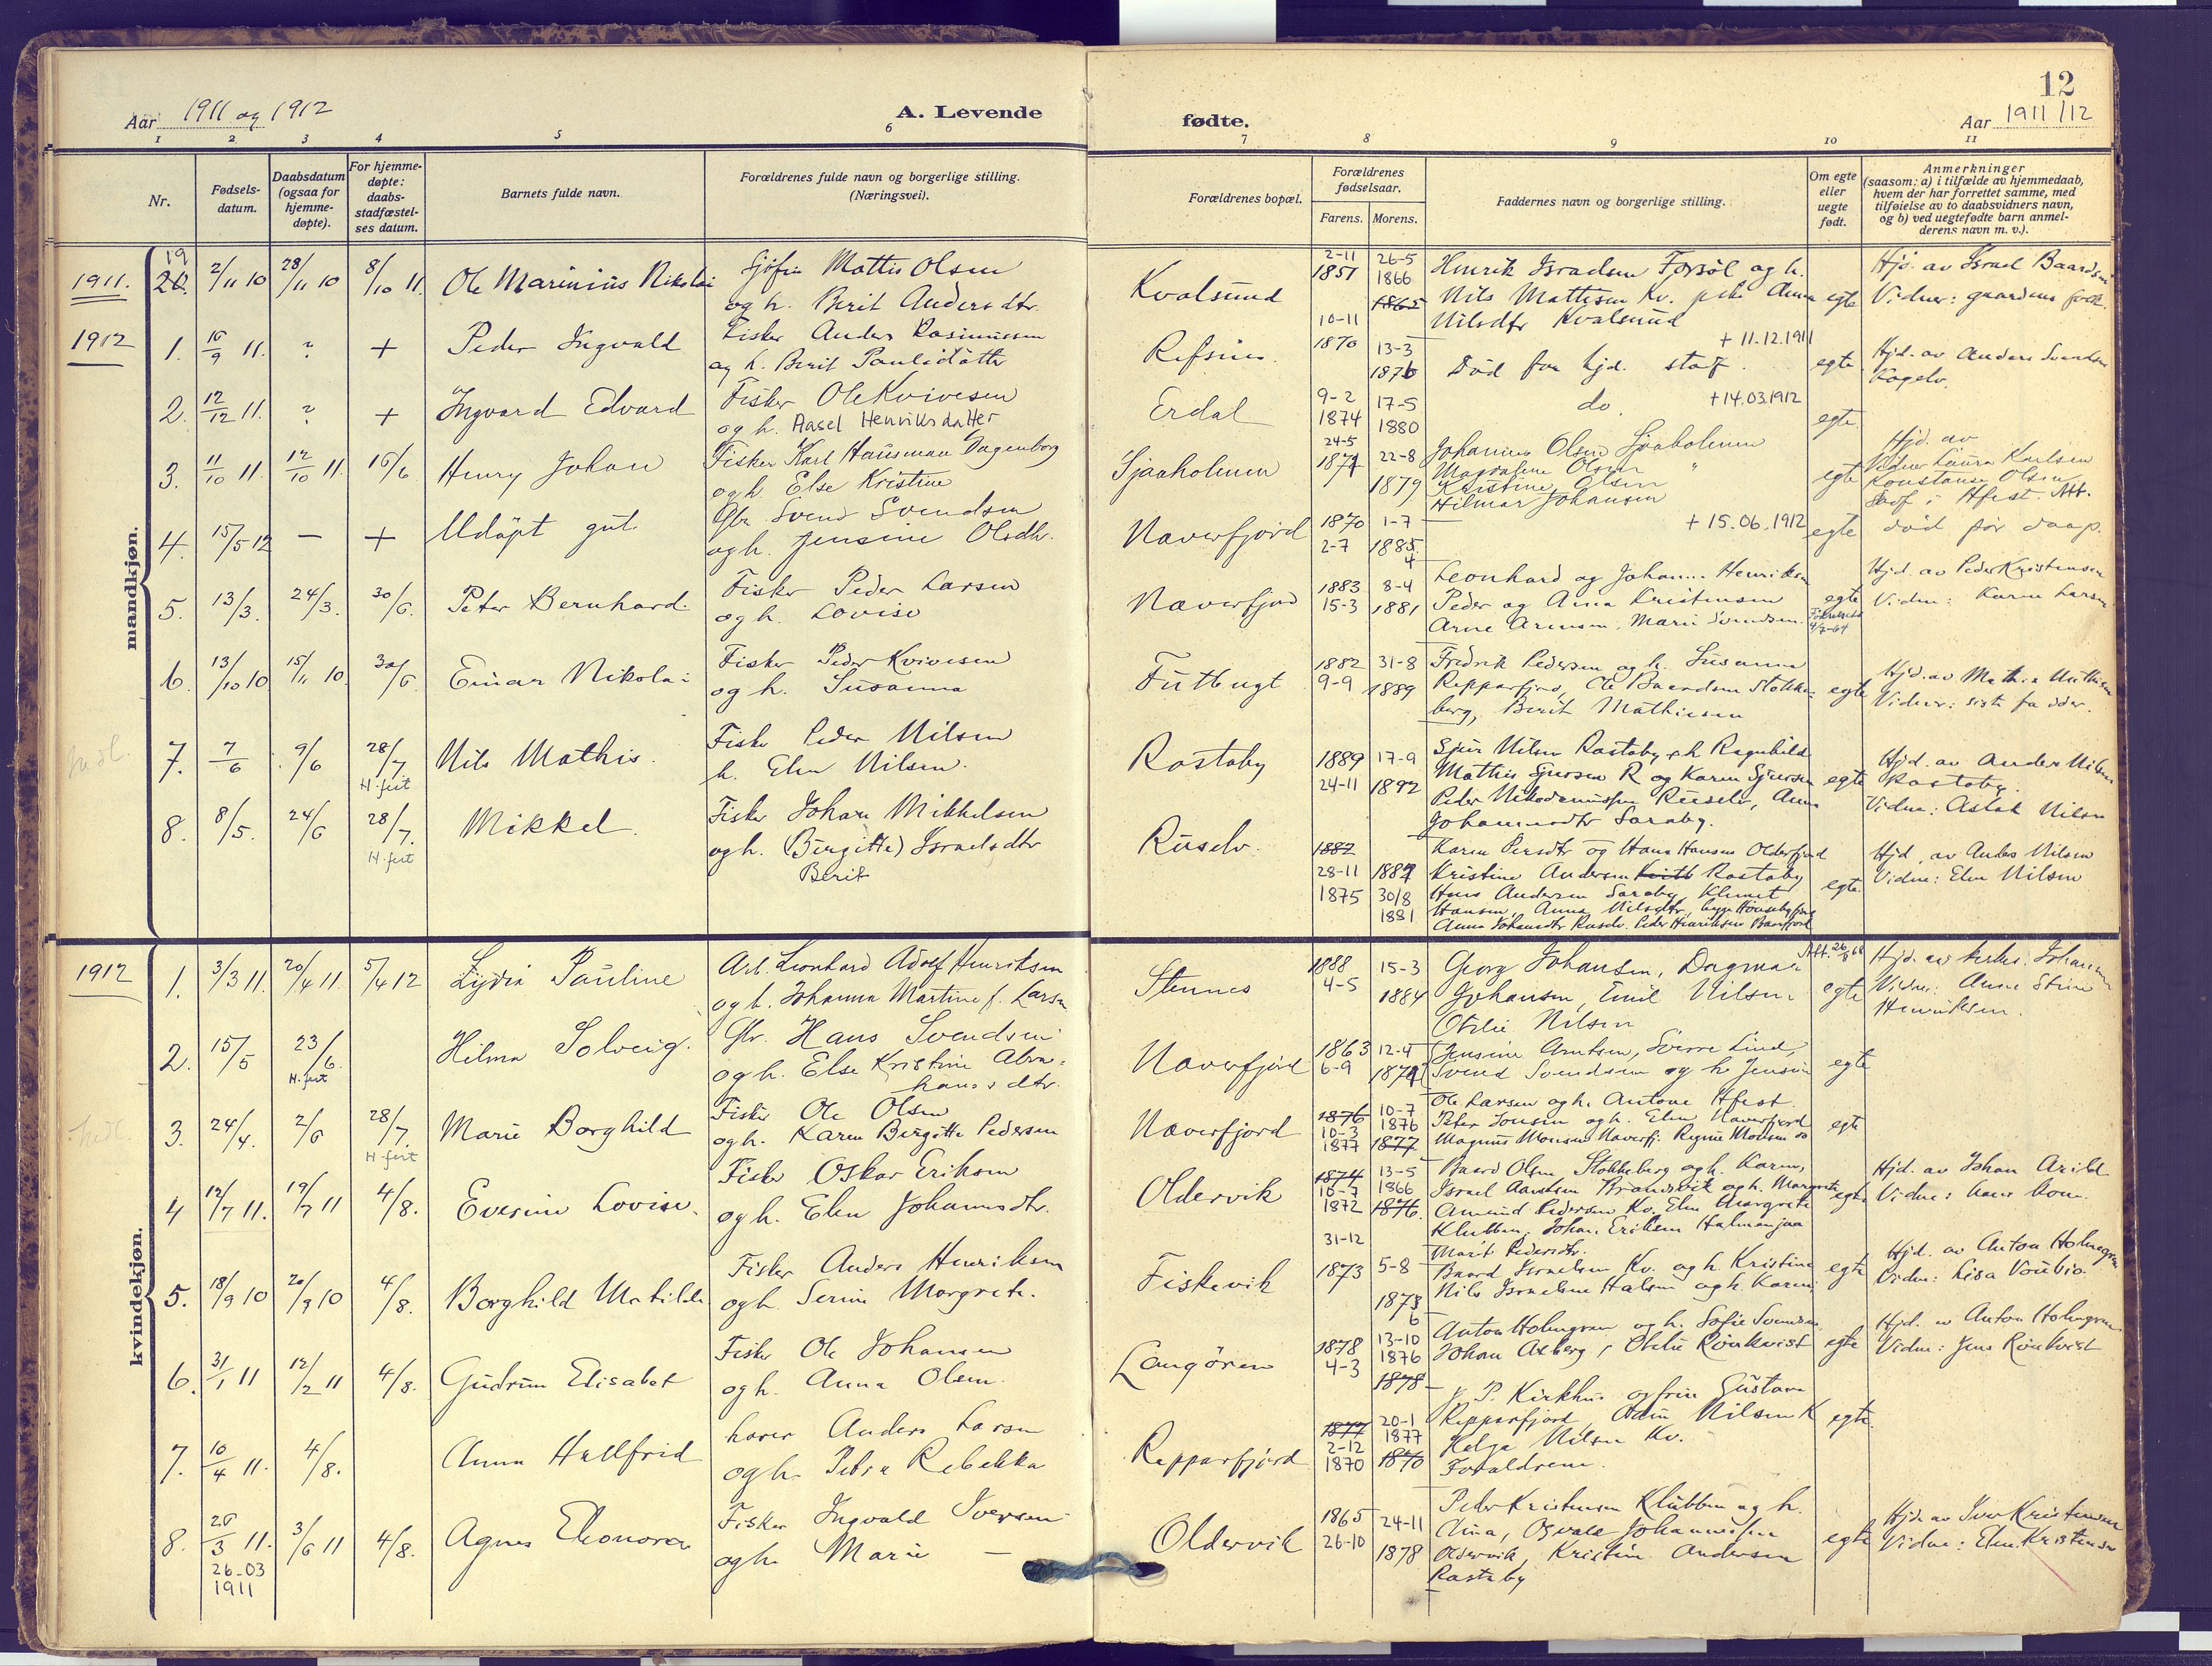 12
Aar 1911 og 1912
A. Levende
fødte.
Aar 1911/12
1 2 3 4 5 6 7 8 9 10 11
Nr.
Fødsels-
datum.
Daabsdatum
(ogsaa for
hjemme-
døpte).
For hjemme-
døpte:
daabs-
stadfæstel-
ses datum.
Barnets fulde navn.
Forældrenes fulde navn og borgerlige stilling.
(Næringsvei).
Forældrenes bopæl.
Forældrenes
fødselsaar.
Farens. Morens.
Faddernes navn og borgerlige stilling.
Om egte
eller
uegte
født.
Anmerkninger
(saasom: a) i tilfælde av hjemmedaab,
hvem der har forrettet samme, med
tilføielse av to daabsvidners navn,
og b) ved uegtefødte barn anmel-
derens navn m. v.).
mandkjøn.
1911. 19 20. 2/11 10 28/11 10 8/10 11. Ole Marinius Nikolai
Sjöfin Mattis Olsen
og h. Berit Andersdtr.
Kvalsund
2-11 1851 26-5 1866 1865
Henrik Israelsen Forsöl og h.
Nils Mattisen Kv. pike Anna
Nilsdtr Kvalsund
egte
Hjd. av Israel Baardsen
Vidner: gaardens folk.
1912 1. 16/9 11. ? + Peder Ingvald
Fisker Anders Rasmussen
og h. Berit Paulsdatter
Refsnes.
10-11 1870 13-3 1876
+ 11.12.1911
Död før hjd. staf.
egte
Hjd. av Anders Svendsen
Kogelv.
2. 12/12 11. ? + Ingvard Edvard
Fisker Ole Kvivesen
og h. Aasel Henriksdatter
Erdal
9-2 1874 17-5 1880
do. +14.03.1912
egte
3. 11/10 11. 12/10 11. 16/6 Henry Johan
Fisker Karl Hausman Dagenborg
og h. Else Kristine
Sjaaholmen
24-5 1871 22-8 1879
Johannes Olsen Sjaaholmen
Magdalene Olsen "
Kristine Olsen
Hilmar Johansen
egte
Hjd. av
Vidner Laura Karlsen
Konstanse Olsen
Stadf i Hfest. Att.
4. 15/5 12 — + Udöpt gut
Gbr. Svend Svendsen
og h. Jensine Olsdtr.
Naverfjord
1870 2-7 1-7 1885. 4
— + 15.06.1912
egte
död før daap.
5. 13/3. 24/3. 30/6. Peter Bernhard.
Fisker Peder Larsen
og h. Lovise
Naverfjord
1883 15-3 8-4 1881
Leonhard og Johanne Henriksen
Peder og Anna Kristensen
Arne Arnesen, Marie Svendsen.
egte
4/7-64
Hjd. av Peder Kristensen
Vidne: Karen Larsen
6. 13/10 10 15/11 10. 30/6 Einar Nikolai
Fisker Peder Kvivesen
og h. Susanna
Futbugt
1882 9-9 31-8 1889
Fredrik Pedersen og h. Susanna
Repparfjord, Ole Baardsen Stokke-
berg, Berit Mathisen
egte
Hjd. av Mathis Mathisen
Vidner: siste fadder.
7. 7/6 9/6 28/7. H.fest Nils Mathis.
Fisker Peder Nilsen
h. Elen Nilsen.
Rastaby
1889 24-11 17-9 1892
Sjur Nilsen Rastaby, h Ragnhild
Mathis Sjursen R og Karen Sjursen
Peder Nikodemussen Ruselv, Anna
Johannesdtr Saraby.
egte
Hjd. av Anders Nilsen
Rastaby.
Vidne: Aslak Nilsen
8. 8/5. 24/6 28/7. H.fest Mikkel.
Fisker Johan Mikkelsen
og h. (Birgitte) Israelsdtr
Berit
Ruselv.
1882 28-11 1875 1887 30/8 1881
Karen Persdtr og Hans Hansen Olderfjord
Kristine Andersen Kvitb Rastaby
Hans Andersen Saraby Klemet
Hansen, Anna Nilsdtr,
Anna Johansdtr Ruselv. Peder Henriksen Baarfjord
egte.
Hjd. av Anders Nilsen
Vidne: Elen Nilsen
kvindekjøn.
1912 1. 3/3 11. 20/4 11. 5/4 12 Lydia Pauline
Arb. Leonhard Adolf Henriksen
og h. Johanna Martine f. Larsen
Stennes
1888 4-5 15-3 1884
Georg Johansen, Dagmar
Johansen, Emil Nilsen
Otelie Nilsen
Att. 26/8 68
egte
Vidne: Anne Stine
Henriksen.
2. 15/5 23/6. H.fest Hilma Solveig.
Gbr. Hans Svendsen
og h. Else Kristine Abra-
hamsdtr.
Naverfjord
1863 6-9 12-4 1874
Jensine Arntsen, Sverre Lind,
Svend Svendsen og h. Jensine
egte
3. 24/4. 2/6 28/7. H.fest Marie Borghild
Fisker Ole Olsen
og h. Karen Birgitte Pedersen
Naverfjord
1876 10-3 1877 10-7 1876 1877
Ole Larsen og h. Antone Hfest.
Peter Jonsen og h. Elen Naverfjord
Magnus Monsen Naverfj. Regine Monsen do
egte
4 12/7 11. 19/7 11 4/8. Evesine Lovise.
Fisker Oskar Eriksen
og h. Elen Johannesdtr.
Oldervik
1874 10-7 1872 13-5 1866 1876.
Baard Olsen Stokkeberg og h. Karen,
Israel Aandsen Brandsvik og h. Margrete
Amund Pedersen Kv. Elen Margrete
Klubben, Johan Eriksen
Marit Pedersdtr.
egte
Hjd. av Johan Arild
5. 18/9 10 20/9 10 4/8. Borghild Matilde
Fisker Anders Henriksen
og h. Serine Margrete.
Fiskevik
31-12 1873 5-8 1873 6
Baard Israelsen Kv. og h. Kristine
Nils Israelsen Halsen og h. Karen
egte
Hjd. av Anton Holmgren
Vidne: Lisa Voubio.
6. 31/1 11 12/2 11 4/8. Gudrun Elisabet
Fisker Ole Johansen
og h. Anna Olsen.
Langören
1878 4-3 13-10 1876 1878
Anton Holmgren og h. Sofie Svendsen
Johan Axberg, Otelie Rönkvist
egte
Hjd. av Anton Holmgren
Vidne: Jens Rönkvist
7. 10/4 11. 4/8. Anna Hallfrid
Lærer Anders Larsen
og h. Petra Rebekka
Repparfjord
1877 2-12 1870 20-1 1877 1870
J. P. Kirkhus og frue Gustava
Repparfjord, Odin Nilsen K
Helga Nilsen Kv.
Foraldrene.
egte
8. 26/3 11. 3/6 11 4/8. Agnes Eleonora
26-03
1911
Fisker Ingvald Iversen
og h. Marie —
Oldervik
1865 26-10 24-11 1878
Peder Kristensen Klubben og h.
Anna, Osvald Johannessen
Oldervik, Kristine Andersen
Rastaby
egte
Hjd. av Iver Kristensen
Vidne: Elen Kristensen